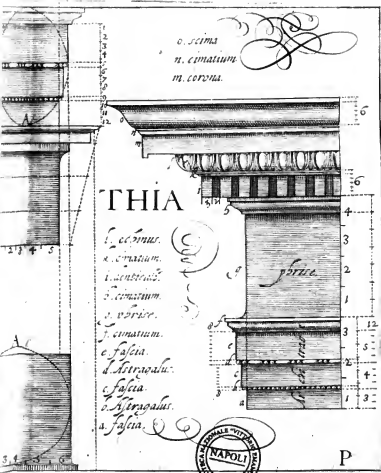 o. scima
n. cimatium
m. corona.
THIA
l. echinus.
k. cimatium.
i. denticulus.
h. cimatium.
g. phrise.
f. cimatium.
e. fascia.
d. Astragalus.
c. fascia.
b. Astragalus.
a. fascia.
phrise.
NAPOLI
P